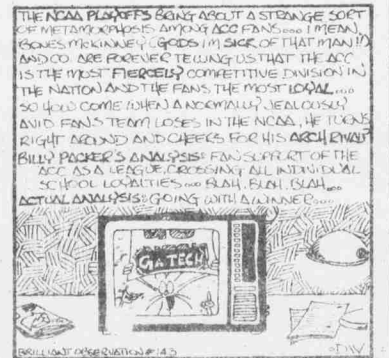 THE NCAA PLAYOFFS BRING ABOUT A STRANGE SORT
OF METAMORPHOSIS AMONG ACC FANS.... I MEAN,
BONES MCKINNEY (GODS I'M SICK OF THAT MAN!!)
AND CO. ARE FOREVER TELLING US THAT THE ACC
IS THE MOST FIERCELY COMPETITIVE DIVISION IN
THE NATION AND THE FANS, THE MOST LOYAL....
SO HOW COME WHEN A NORMALLY JEALOUSLY
AVID FAN'S TEAM LOSES IN THE NCAA, HE TURNS
RIGHT AROUND AND CHEERS FOR HIS ARCH RIVAL?
BILLY PACKER'S ANALYSIS: FAN SUPPORT OF THE
ACC AS A LEAGUE, CROSSING ALL INDIVIDUAL
SCHOOL LOYALTIES.... BLAH, BLAH, BLAH...
ACTUAL ANALYSIS: GOING WITH A WINNER....
GA TECH
BRILLIANT OBSERVATION #143